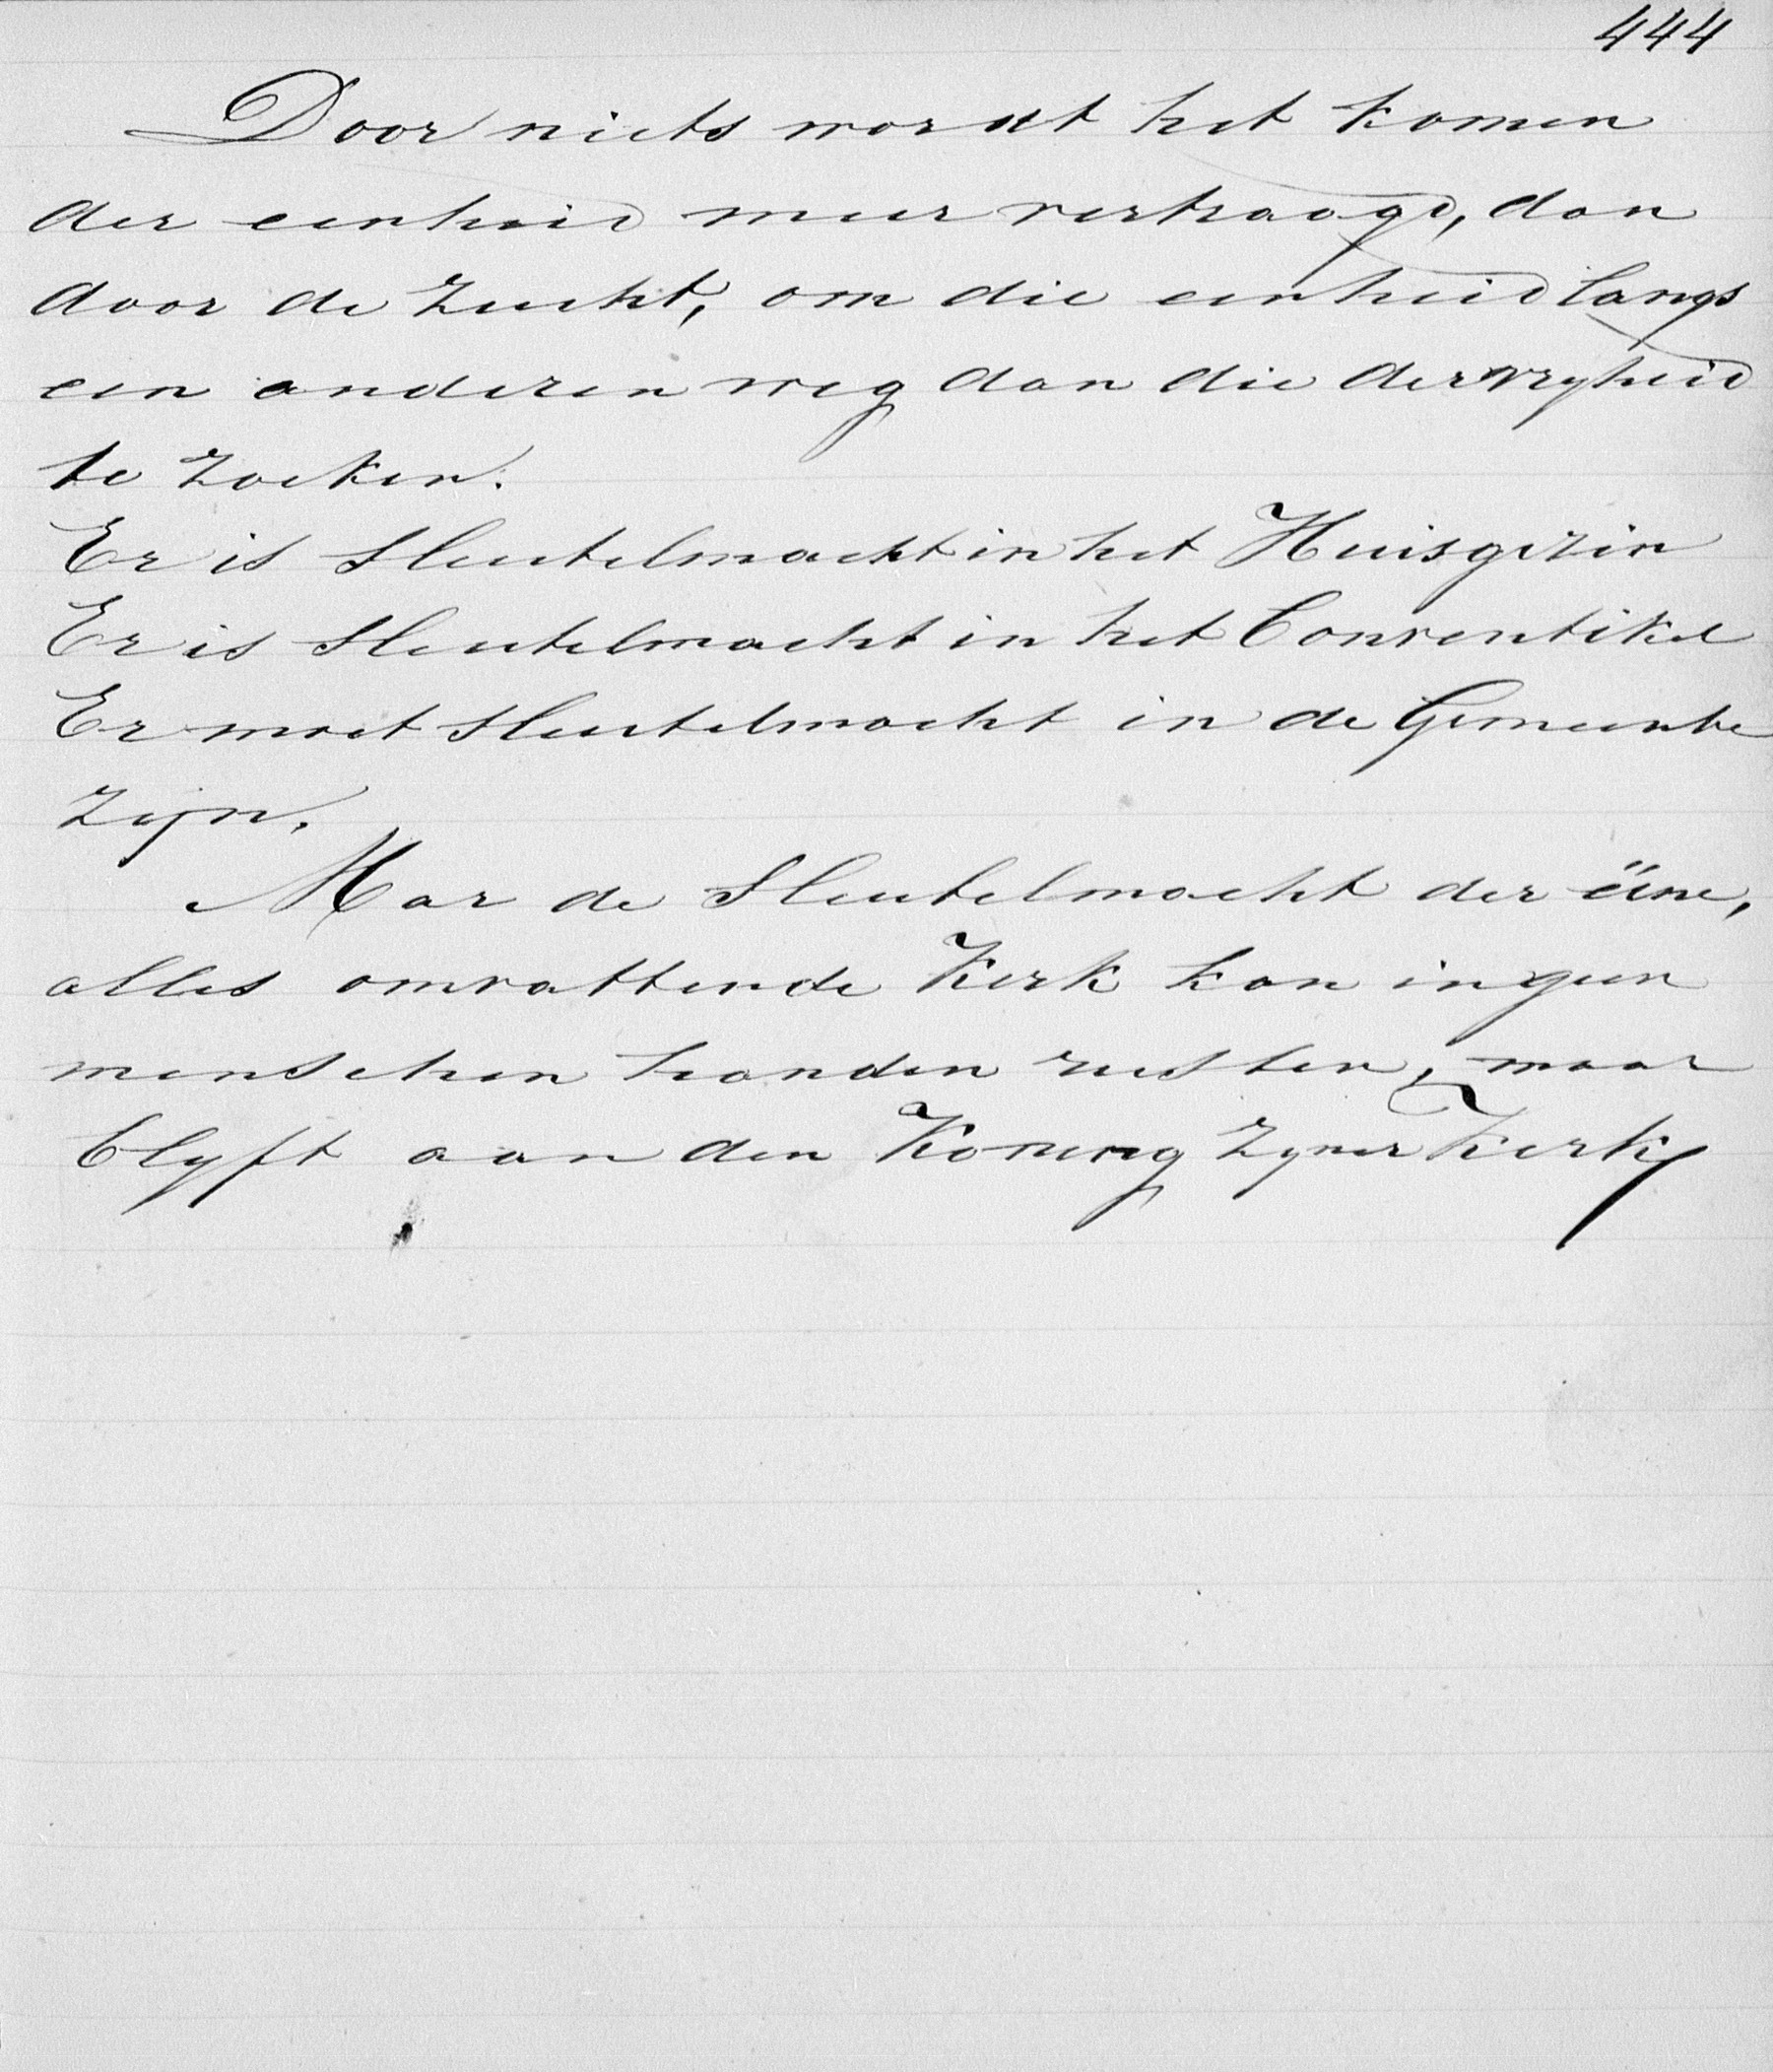 444
Door niets wordt het komen
der eenheid meer vertraagd, dan
door de zucht, om die eenheid langs
een anderen weg dan die der vryheid
te zoeken.
Er is Sleutelmacht in het Huisgezin
Er is Sleutelmacht in het Conventikel
Er moet Sleutelmacht in de Gemeente
zijn.
Mar de Sleutelmacht der ééne,
alles omvattende Kerk kan in geen
menschen handen rusten, maar
blyft aan den Koning Zyner Kerk